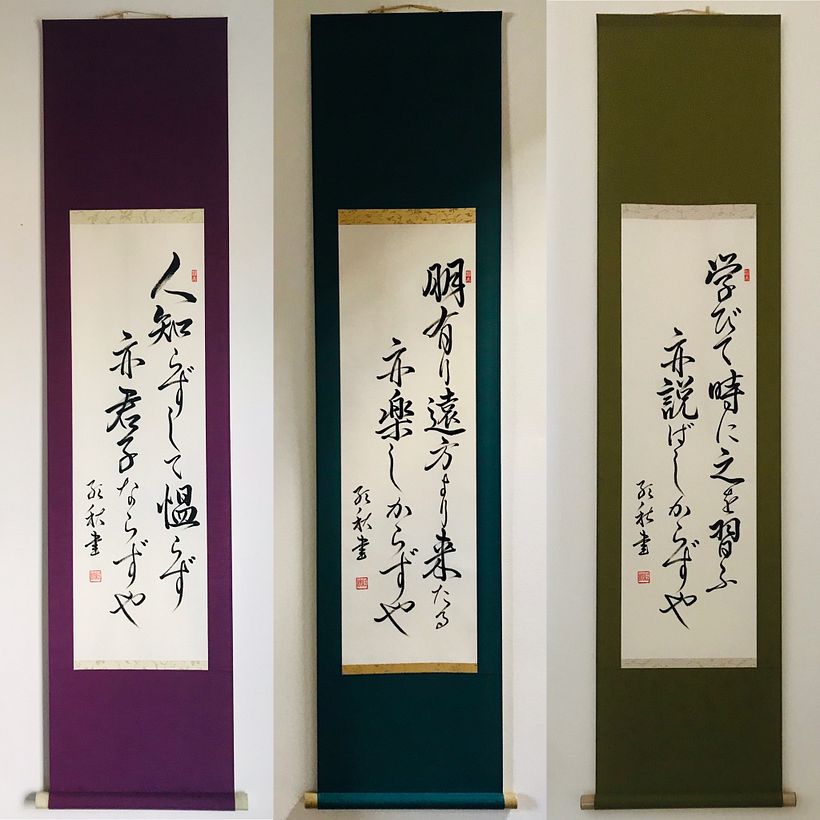 学びて時に之を習ふ
亦説ばしからずや
秋書
朋有り遠方より来たる
亦楽しからずや
秋書
人知らずして慍らず
亦君子ならずや
秋書